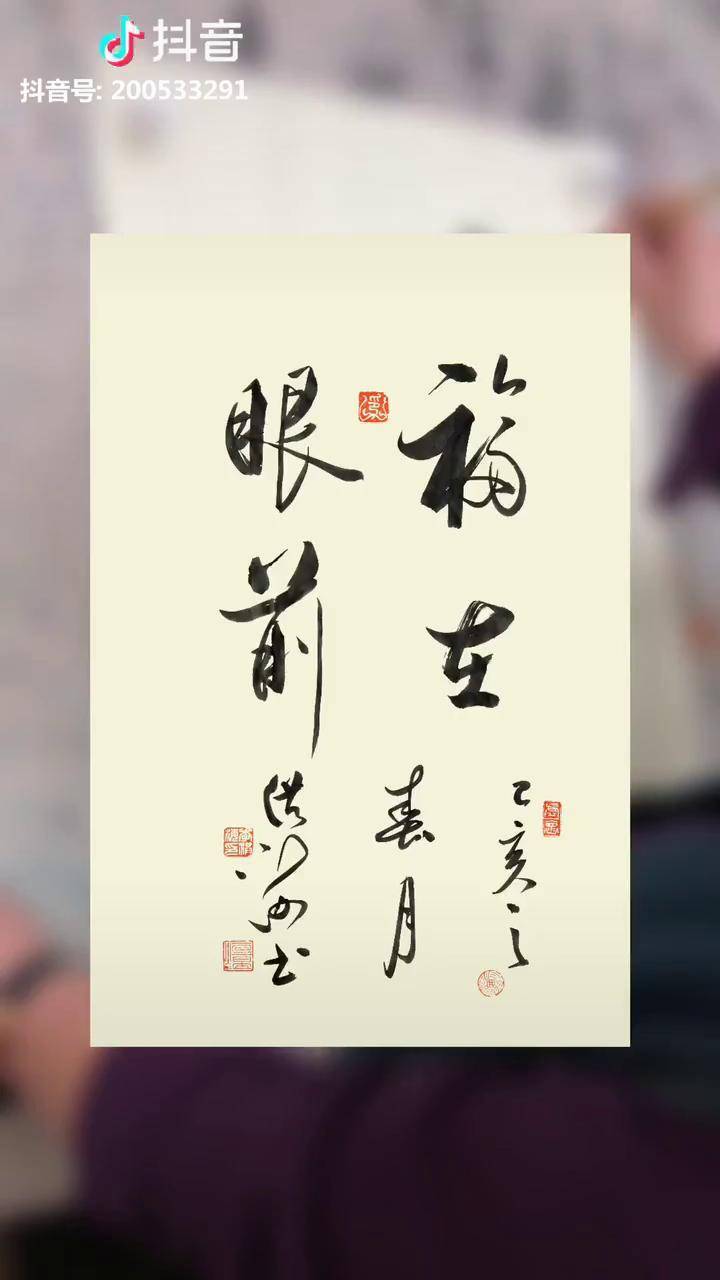 抖音
抖音号: 200533291
福在
眼前
己亥之
春月
书